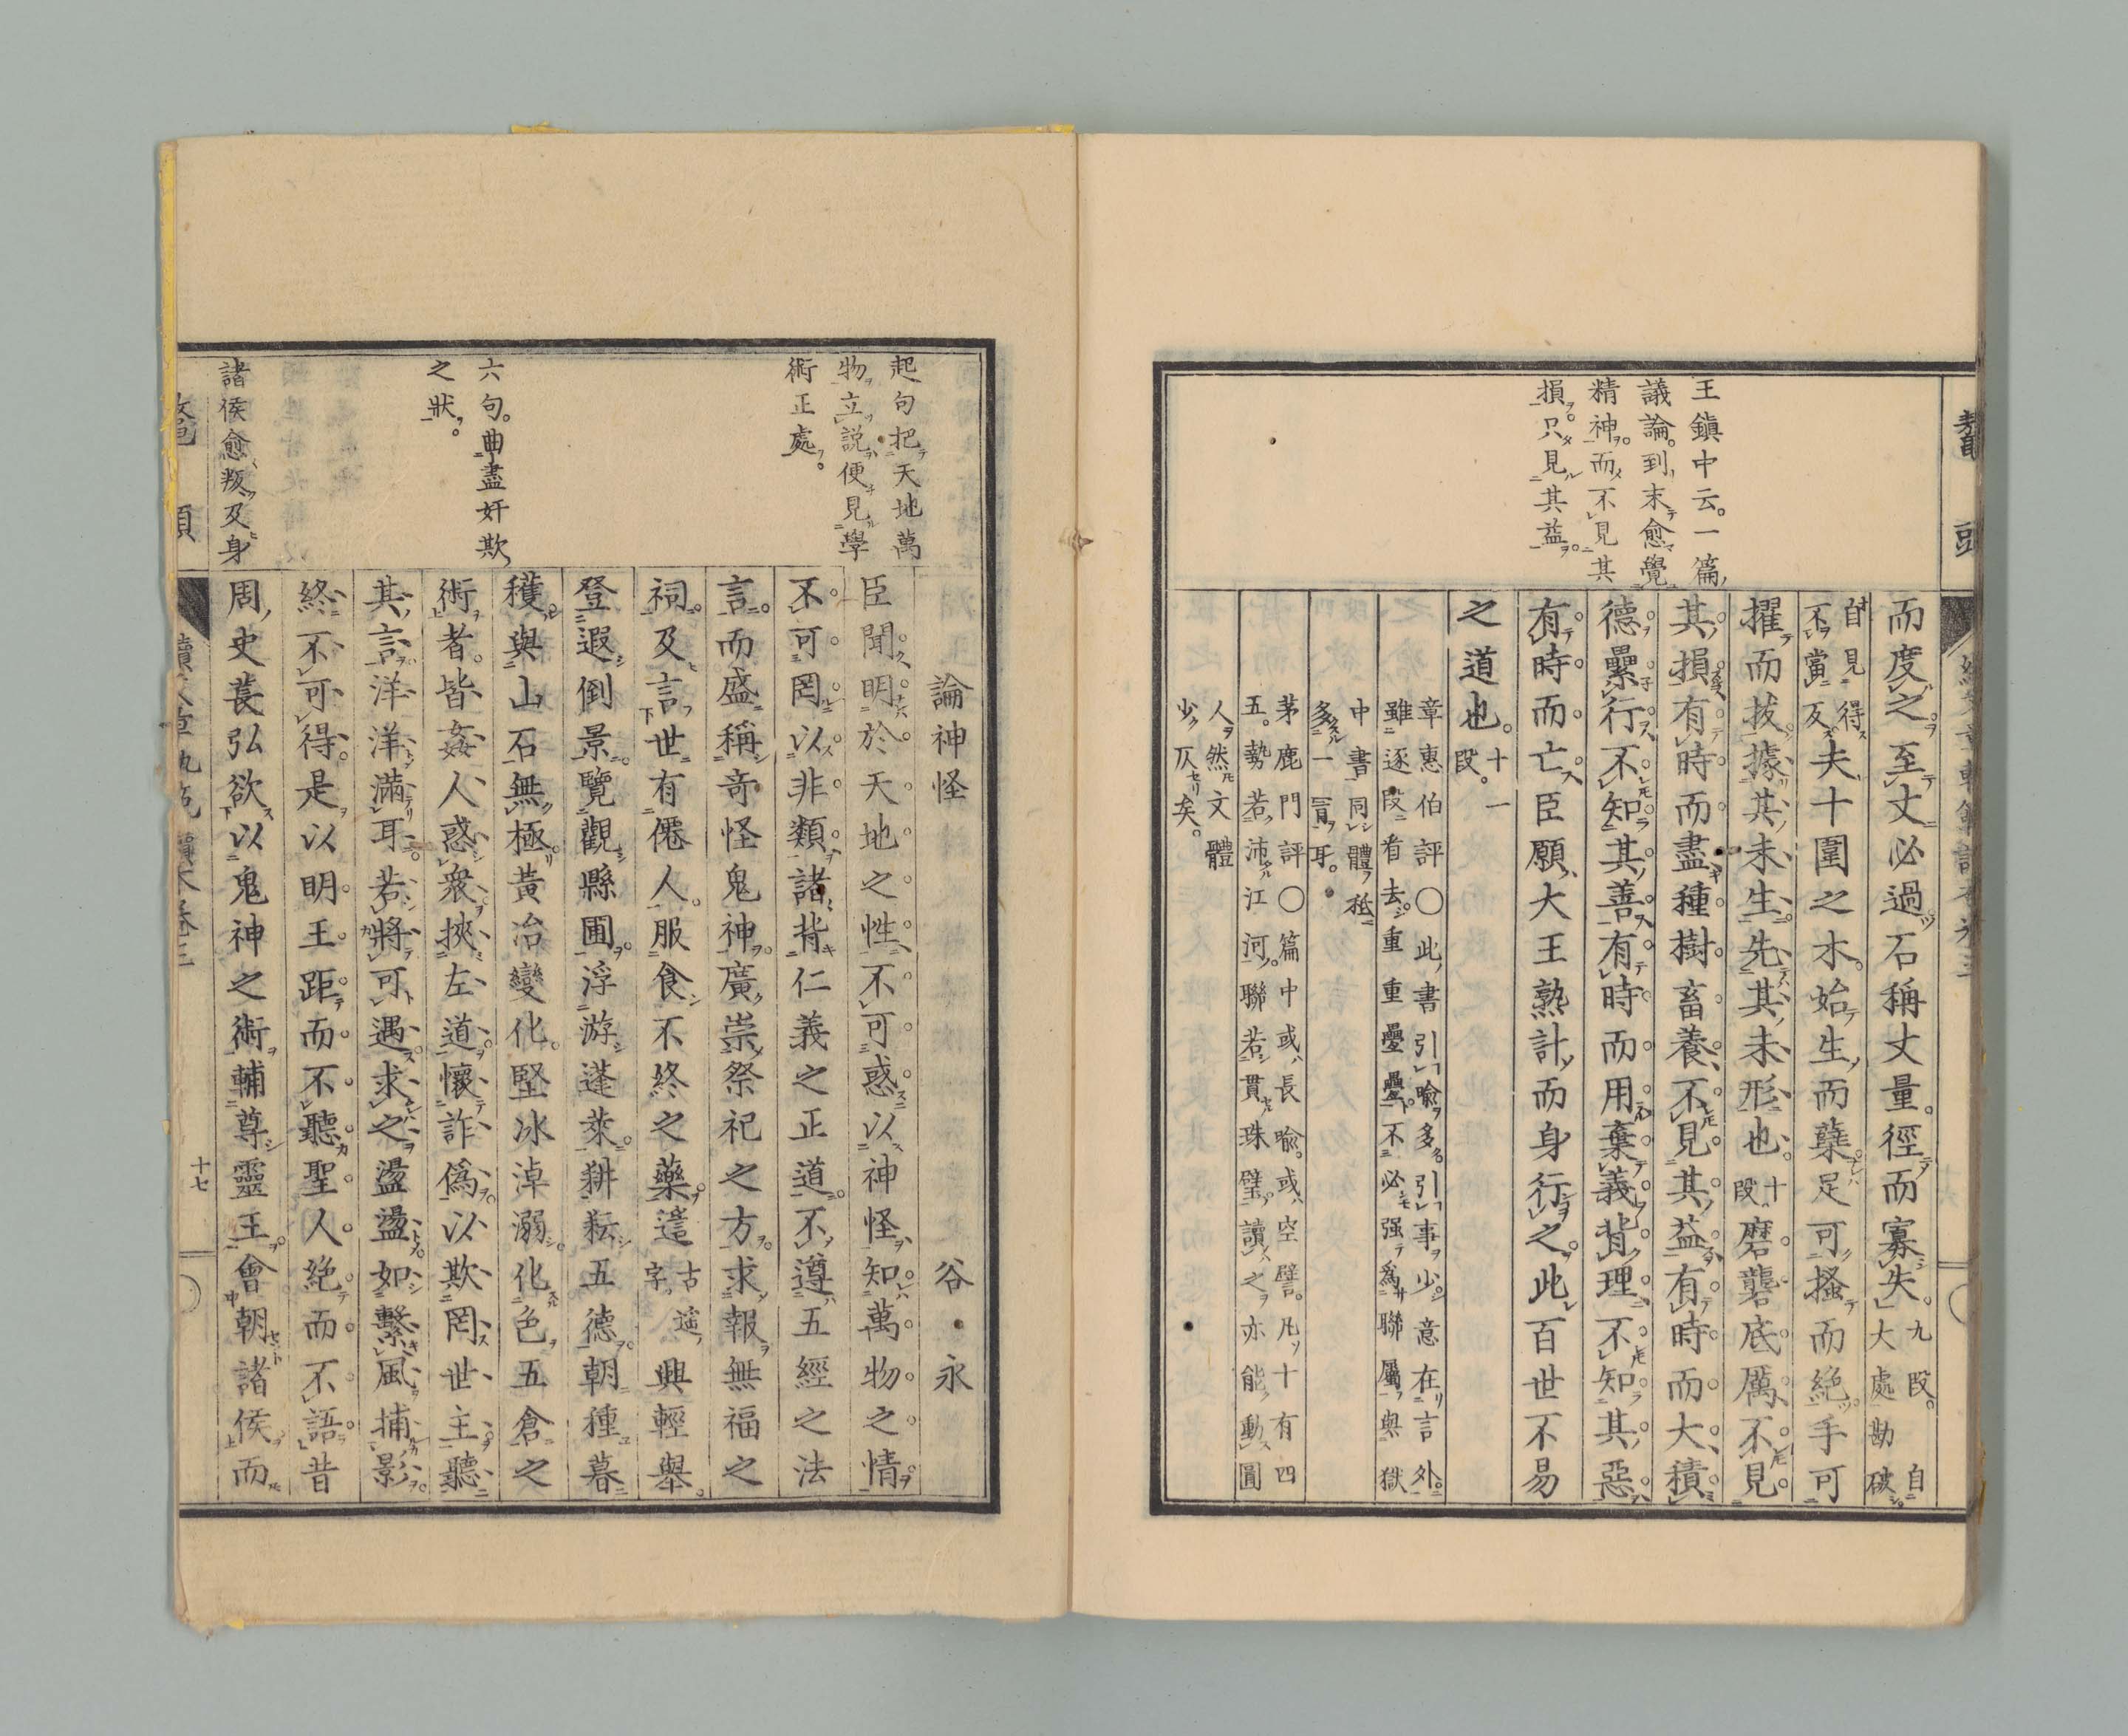 鼇頭
王鎮中云。一篇
議論。到末愈覺
精神。而不見其
損。只見其益。
而度之至丈必過石稱丈量。徑而寡失。九段。大處勘破。自
自見得不當反夫十圍之木。始生而蘖足可搔而絕。手可
擢而拔據其未生。先其未形也。十段磨礱底厲不見
其損有時而盡種樹畜養不見其益有時而大積
德纍行不知其善有時而用棄義背理不知其惡
有時而亡臣願大王熟計而身行之此百世不易
之道也。十一段。
章惠伯評○此書引喻多。引事少。意在言外。
雖逐段看去重重疊疊不必强爲聯屬與獄
中書同體秪
多一冐耳。
茅鹿門評○篇中或長喻。或空譬。凡十有四
五。勢若沛江河。聯若貫珠璧。讀之亦能動圓
人然文體
少仄矣。
起句把天地萬
物立說便見學
術正處。
六句。曲盡奸欺
之狀。
諸侯愈叛及身
論神怪 谷永
臣聞明於天地之性不可惑以神怪知萬物之情
不可罔以非類諸背仁義之正道不遵五經之法
言而盛稱奇怪鬼神廣崇祭祀之方求報無福之
祠及言世有僊人服食不終之藥遙古遙字興輕舉
登遐倒景覽觀縣圃浮游蓬萊耕耘五德朝種暮
穫與山石無極黃冶變化堅冰淖溺化色五倉之
術者。皆姦人惑衆挾左道懷詐僞以欺罔世主聽
其言洋洋滿耳若將可遇求之盪盪如繫風捕影
終不可得是以明王距而不聽聖人絕而不語昔
周史萇弘欲以鬼神之術輔尊靈王會朝諸侯而
十七